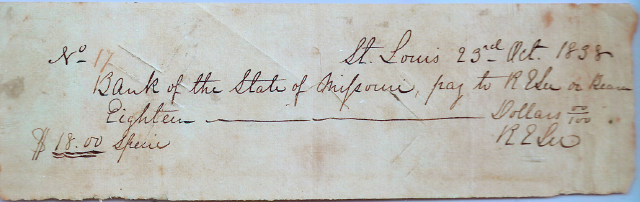 No 17 St. Louis 23rd Oct. 1838
Bank of the State of Missouri, pay to R E Lee or Bearer
Eighteen Dollars 00/100
$ 18.00 Specie R E Lee